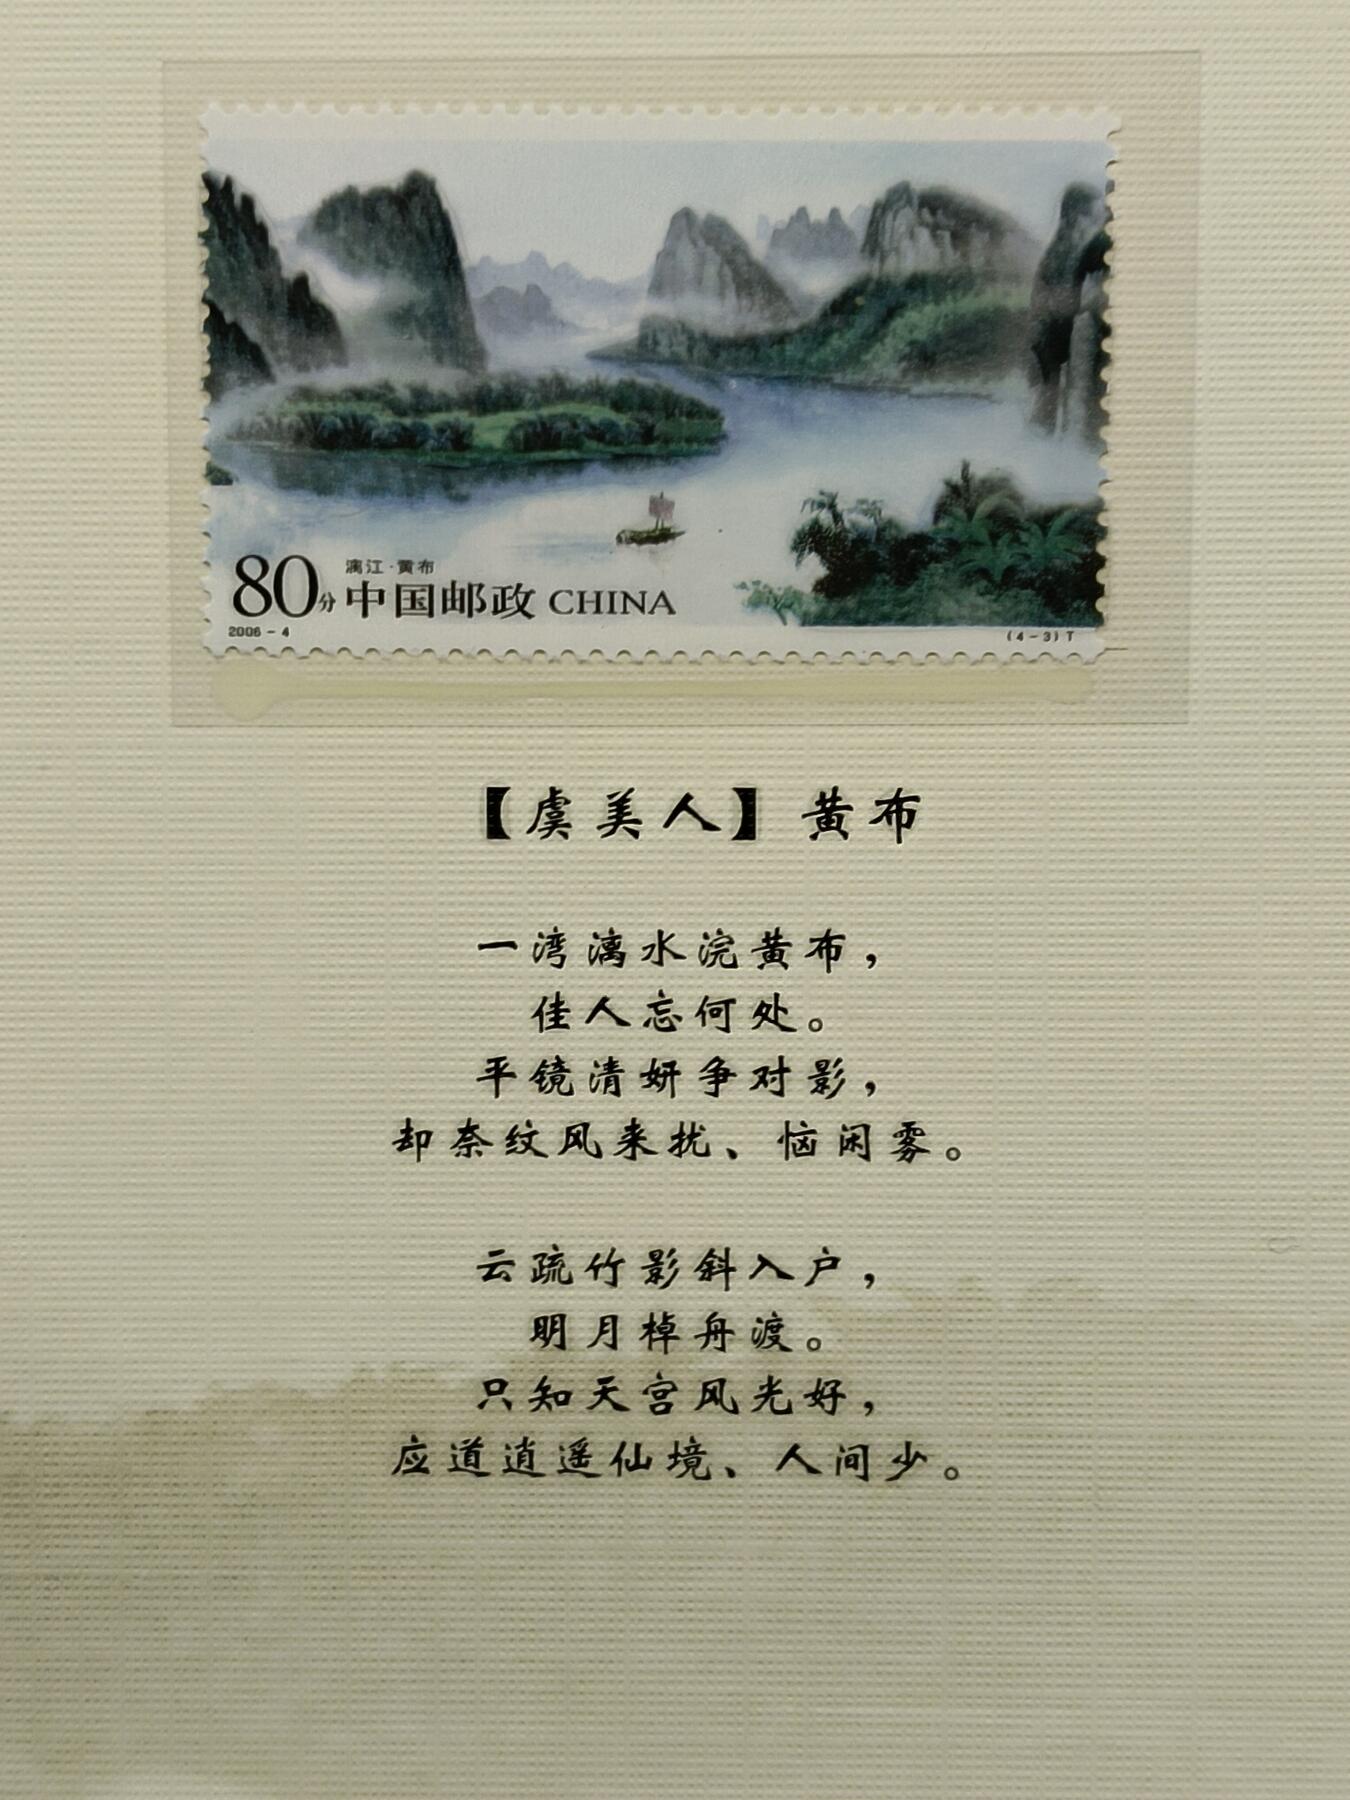 漓江·黄布
80分 中国邮政 CHINA
2006-4
(4-3)T
【虞美人】黄布
一湾漓水浣黄布，
佳人忘何处。
平镜清妍争对影，
却奈纹风来扰、恼闲雾。
云疏竹影斜入户，
明月棹舟渡。
只知天宫风光好，
应道逍遥仙境、人间少。